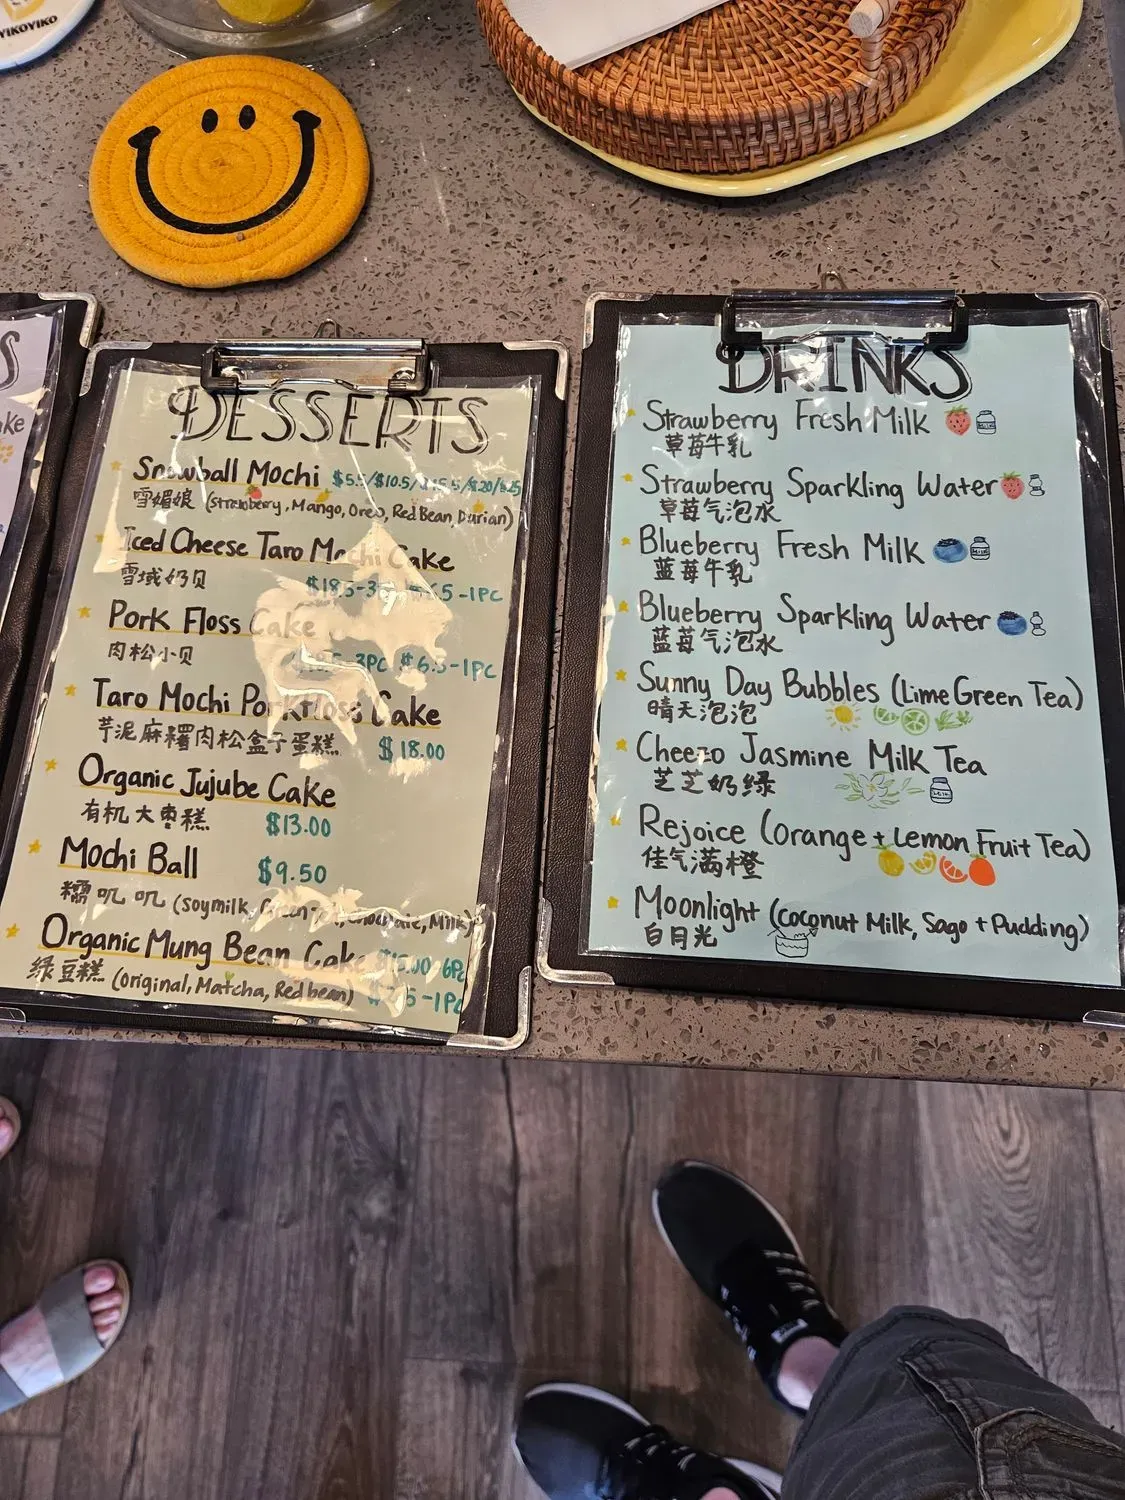 YIKOYIKO
S
ake
DESSERTS
Snowball Mochi $5.5/$10.5/$15.5/$20/$25
雪媚娘 (strawberry, Mango, Oreo, Red Bean, Durian)
Iced Cheese Taro Mochi Cake
雪域奶贝 $18.5-3 .5-1PC
Pork Floss Cake
肉松小贝 .5-3PC $6.5-1PC
Taro Mochi Porkfloss Cake
芋泥麻糬肉松盒子蛋糕 $18.00
Organic Jujube Cake
有机大枣糕 $13.00
Mochi Ball $9.50
糯叽叽 (soymilk, Green , chocolate, Milk)
Organic Mung Bean Cake $15.00-6PC
绿豆糕 (original, Matcha, Redbean) .5-1PC
DRINKS
Strawberry Fresh Milk
草莓牛乳
Strawberry Sparkling Water
草莓气泡水
Blueberry Fresh Milk
蓝莓牛乳
Blueberry Sparkling Water
蓝莓气泡水
Sunny Day Bubbles (Lime Green Tea)
晴天泡泡
Cheezo Jasmine Milk Tea
芝芝奶绿
Rejoice (Orange + Lemon Fruit Tea)
佳气满橙
Moonlight (Coconut Milk, Sago + Pudding)
白月光